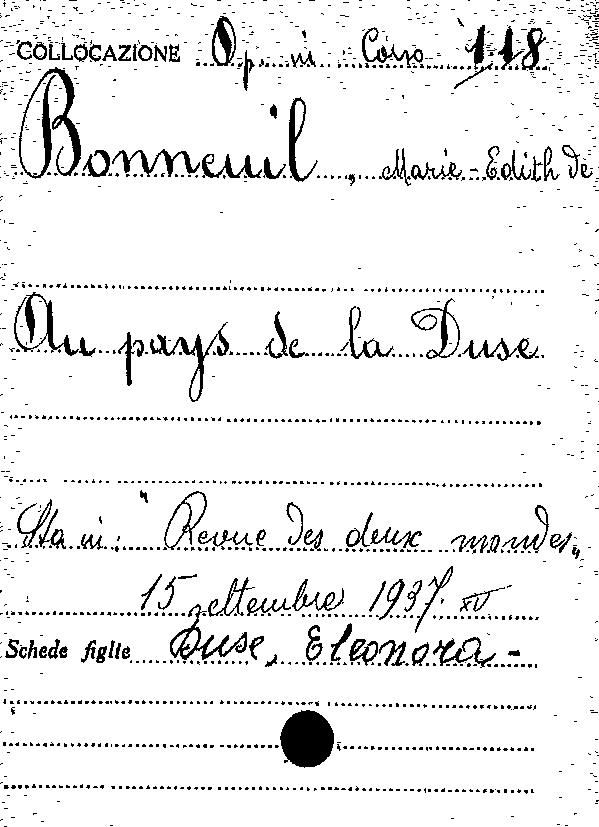 COLLOCAZIONE Op. in Corso 118
Bonneuil, Marie-Edith de
Au pays de la Duse
Sta in: "Revue des deux mondes"
15 settembre 1937. XV
Schede figlie Duse, Eleonora -